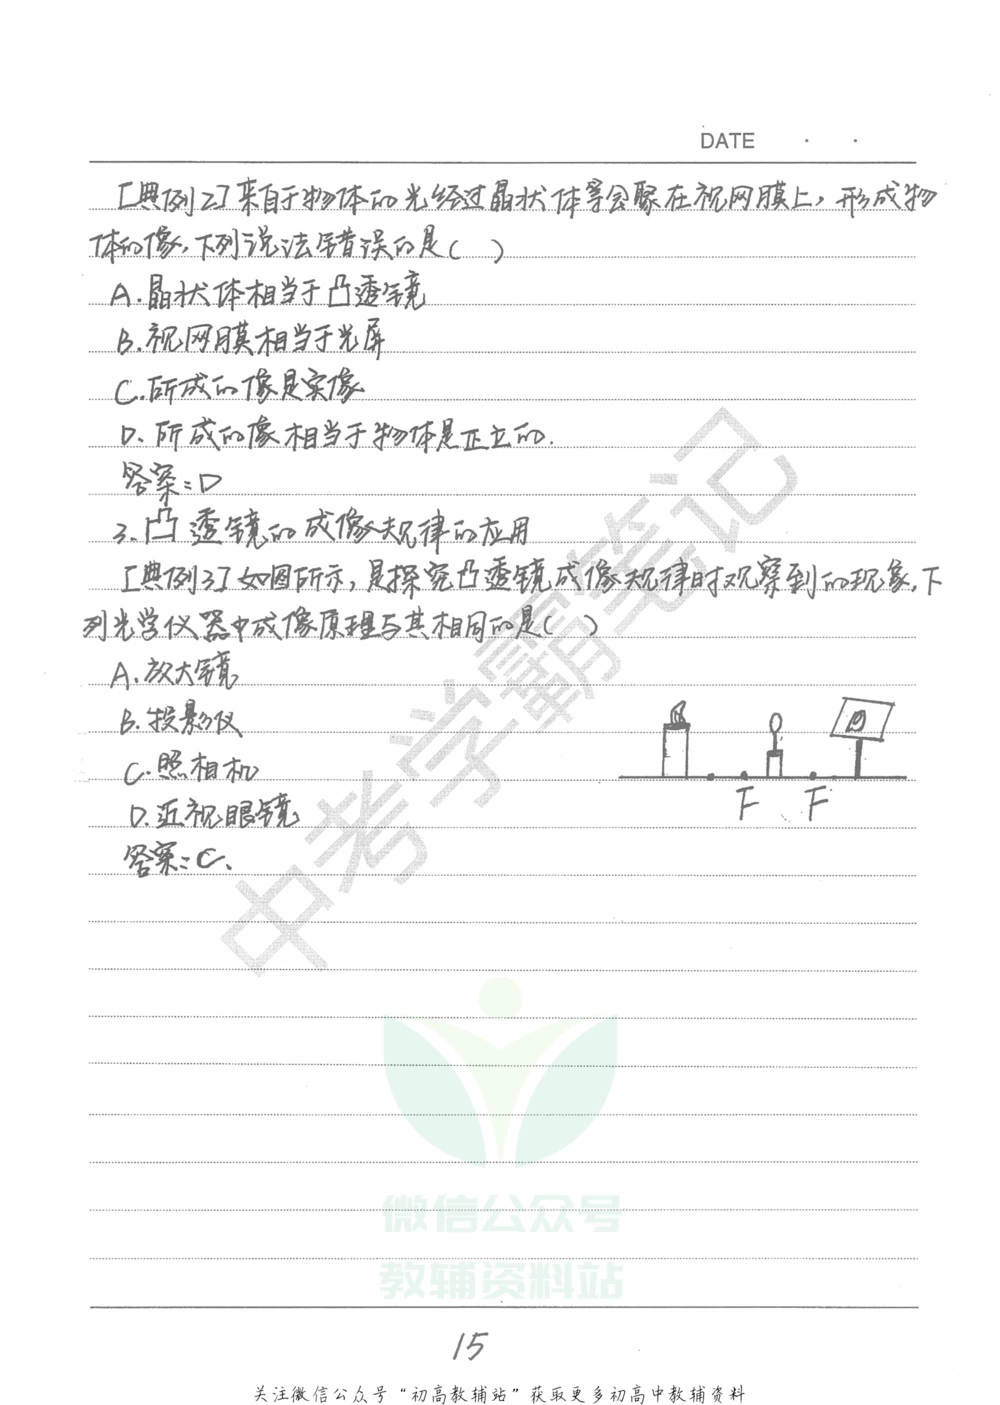 DATE · ·
[典例2]来自于物体的光经过晶状体等会聚在视网膜上，形成物
体的像，下列说法错误的是( )
A.晶状体相当于凸透镜
B.视网膜相当于光屏
C.所成的像是实像
D、所成的像相当于物体是正立的.
答案:D
3、凸透镜的成像规律的应用
[典例3]如图所示，是探究凸透镜成像规律时观察到的现象，下
列光学仪器中成像原理与其相同的是( )
A.放大镜
B.投影仪
C.照相机
D.近视眼镜
答案:C、
F F
中考学霸笔记
微信公众号
教辅资料站
15
关注微信公众号“初高教辅站”获取更多初高中教辅资料